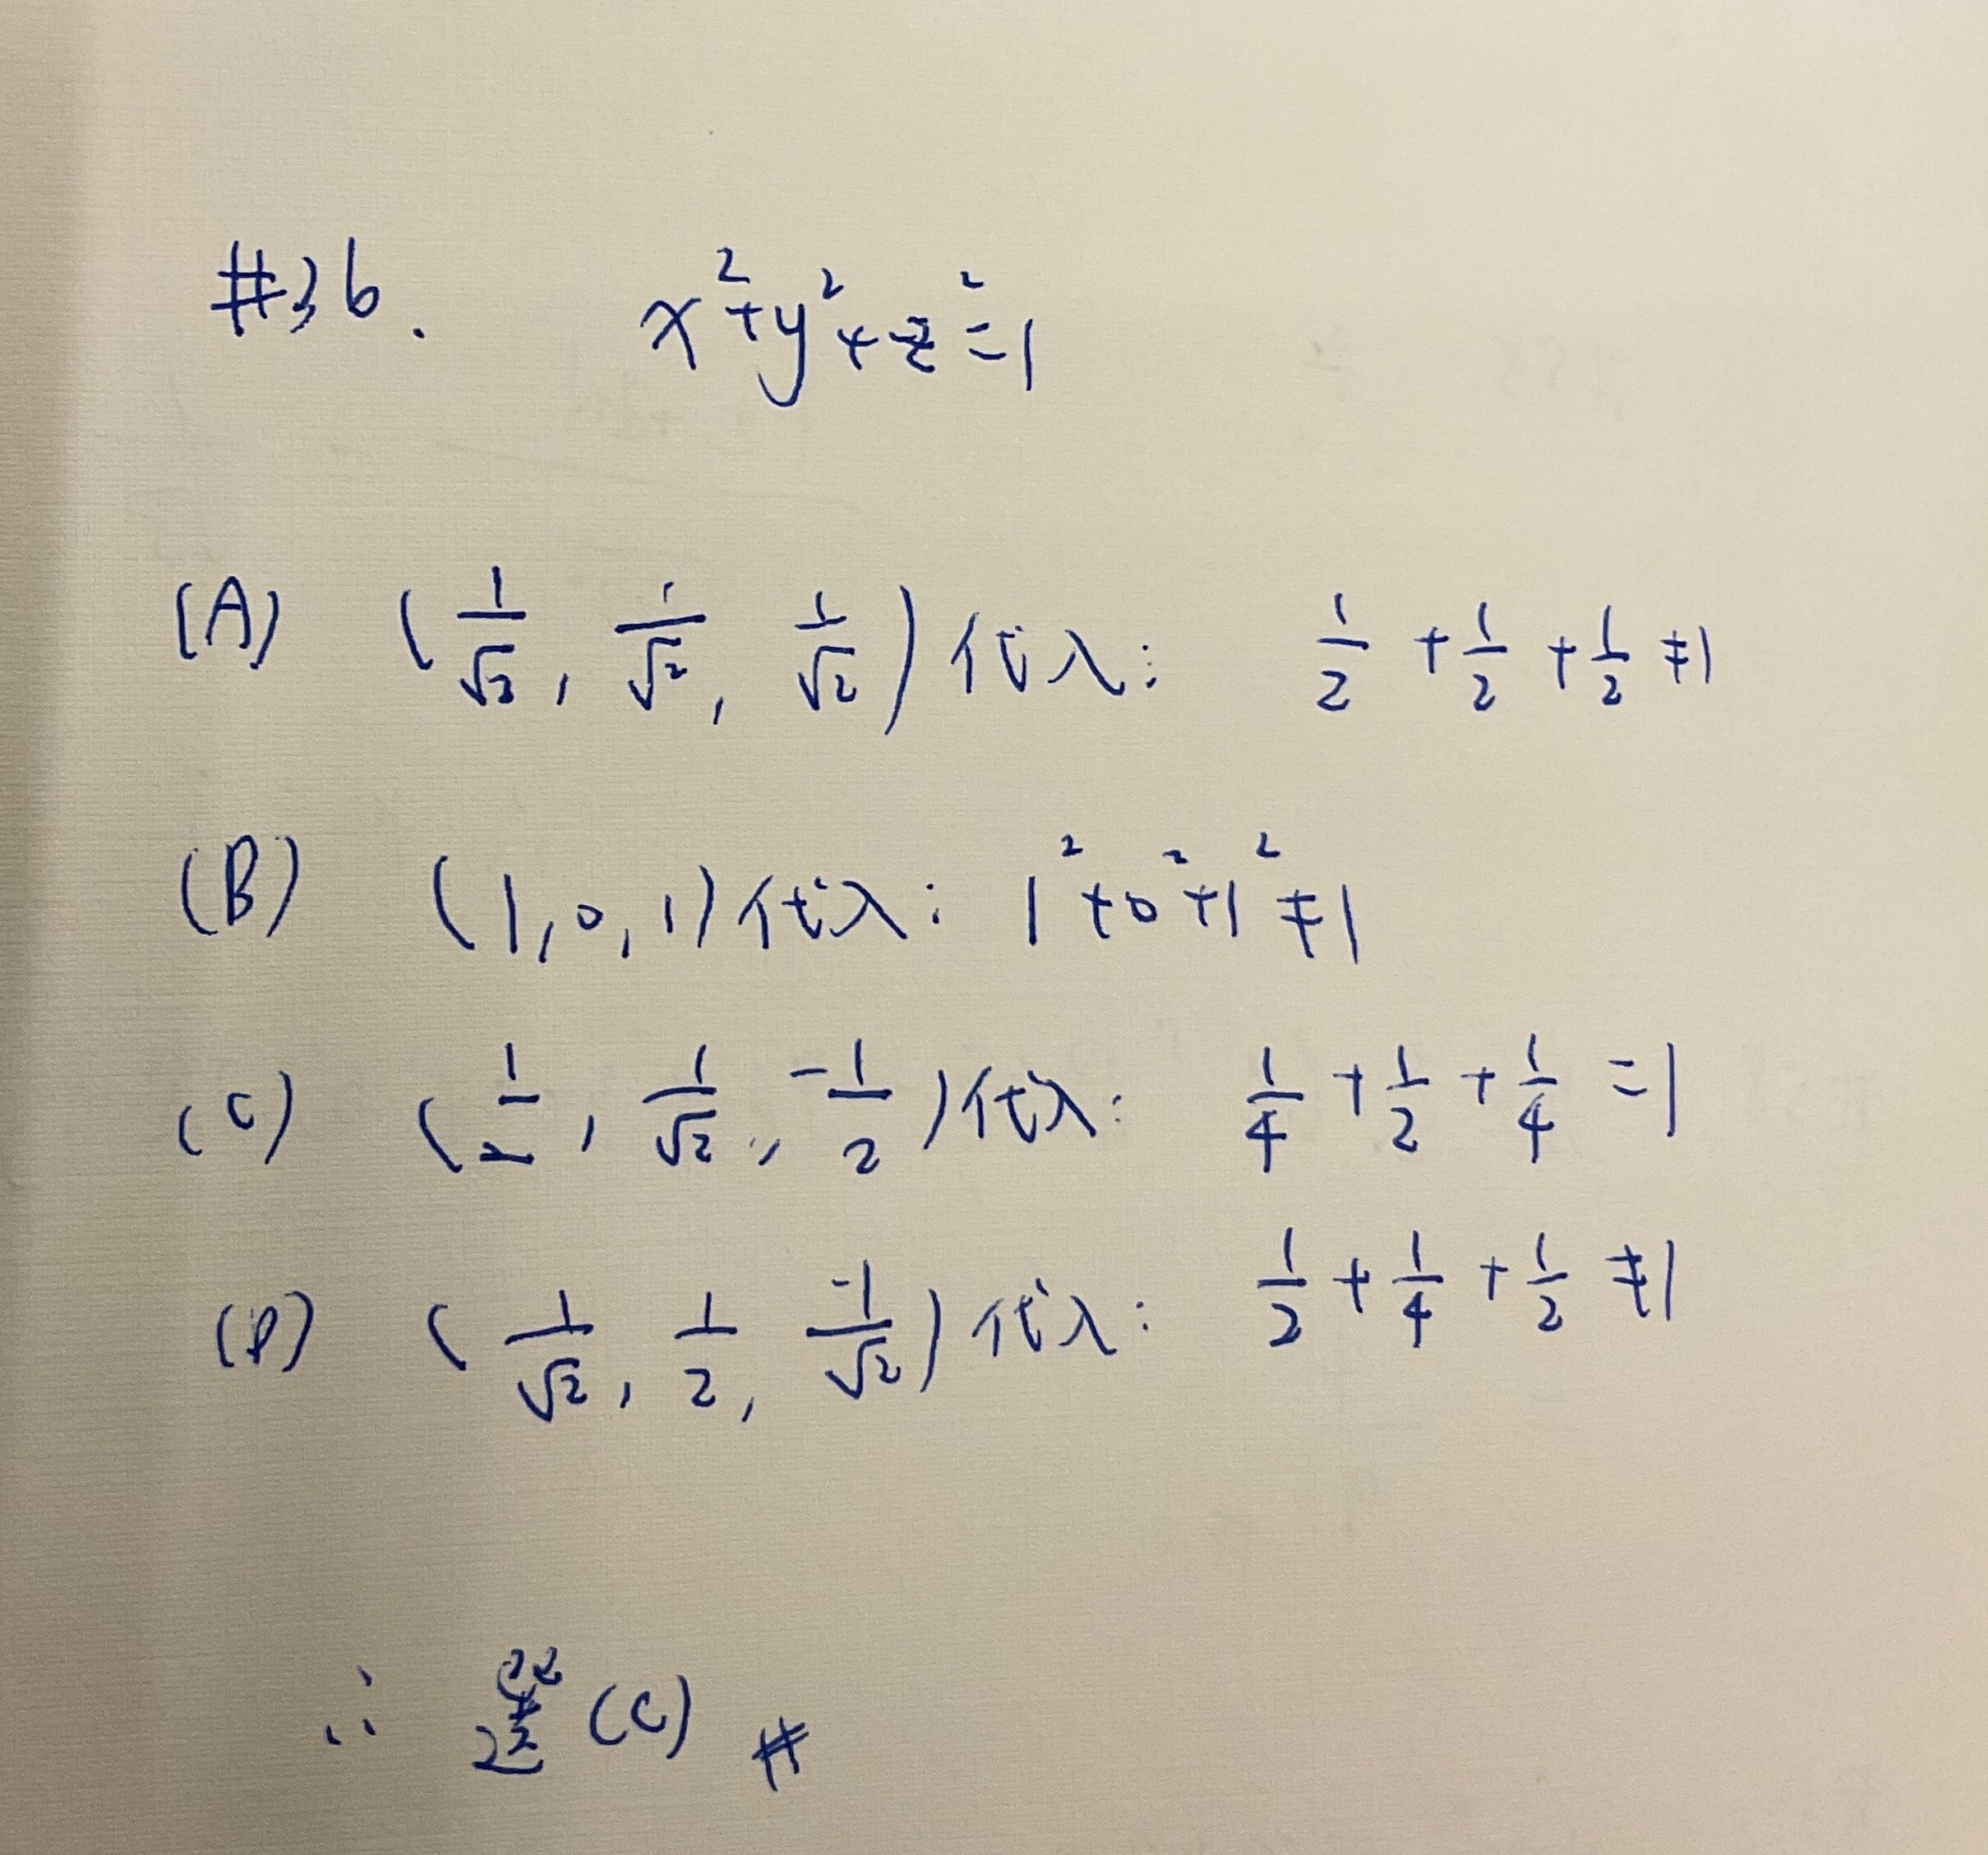 #36. x²+y²+z²=1
(A) (1/√2, 1/√2, 1/√2) 代入: 1/2 + 1/2 + 1/2 ≠1
(B) (1,0,1) 代入: 1²+0²+1²≠1
(C) (1/2, 1/√2, -1/2) 代入: 1/4 + 1/2 + 1/4 =1
(D) (1/√2, 1/2, -1/√2) 代入: 1/2 + 1/4 + 1/2 ≠1
∴ 選 (C) #